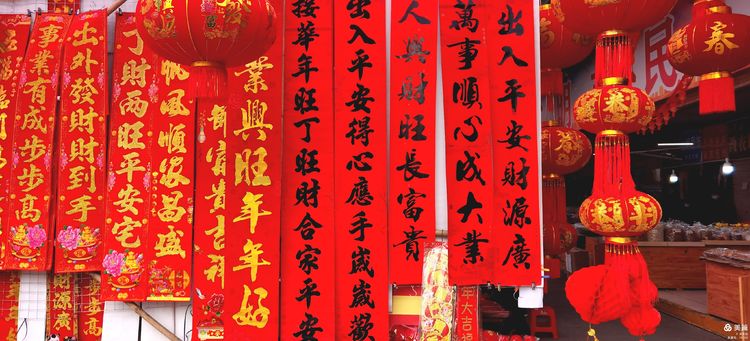 事業有成步步高
出外發財財到手
丁財兩旺平安宅
帆風順家昌盛
富貴吉祥
業興旺年年好
接華年旺丁旺財合家平安
出入平安得心應手歲歲歡
人興財旺長富貴
萬事順心成大業
出入平安財源廣
春
民
財源廣
步高
年大吉
美篇